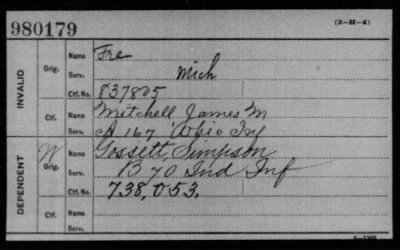 980179
(3-H-4)
INVALID
Orig.
Name Fre
Serv. Mich
Ctf. No. 837805
Ctf.
Name Mitchell James M
Serv. A 167 Ohio Inf
DEPENDENT
W
Orig.
Name Gossett, Simpson
Serv. B 70 Ind Inf
Ctf. No. 738,053.
Ctf.
Name
Serv.